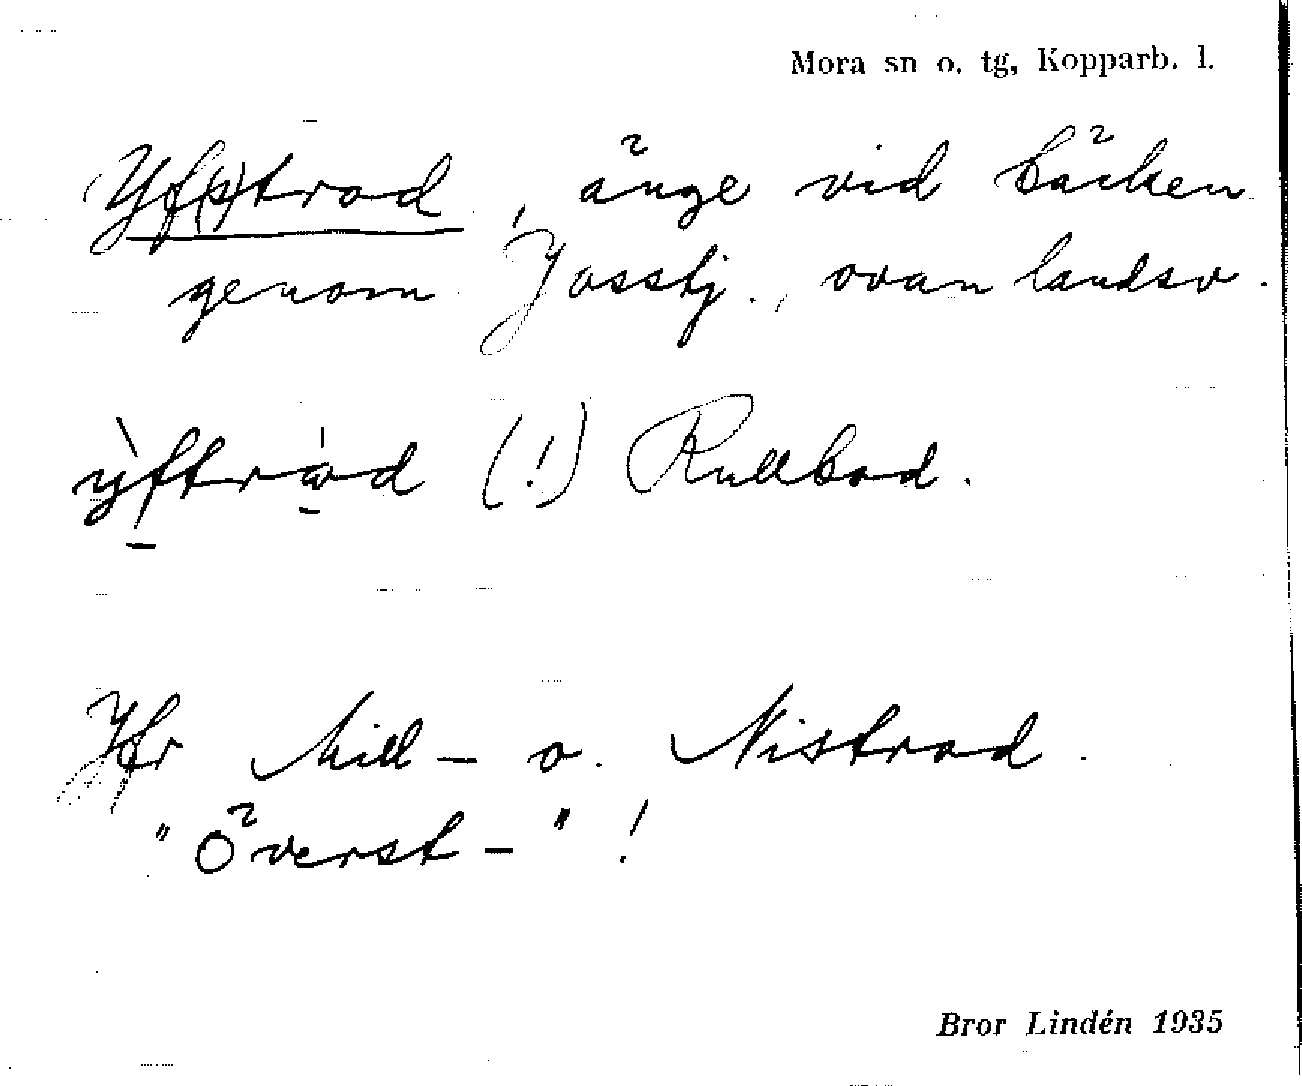 Mora sn o. tg, Kopparb. l.
Yf(s)trod, änge vid bäcken
genom Josstj., ovan landsv.
yftrod (!) Rullbod.
Jfr Mill- o. Nistrod.
"Överst-"!
Bror Lindén 1935